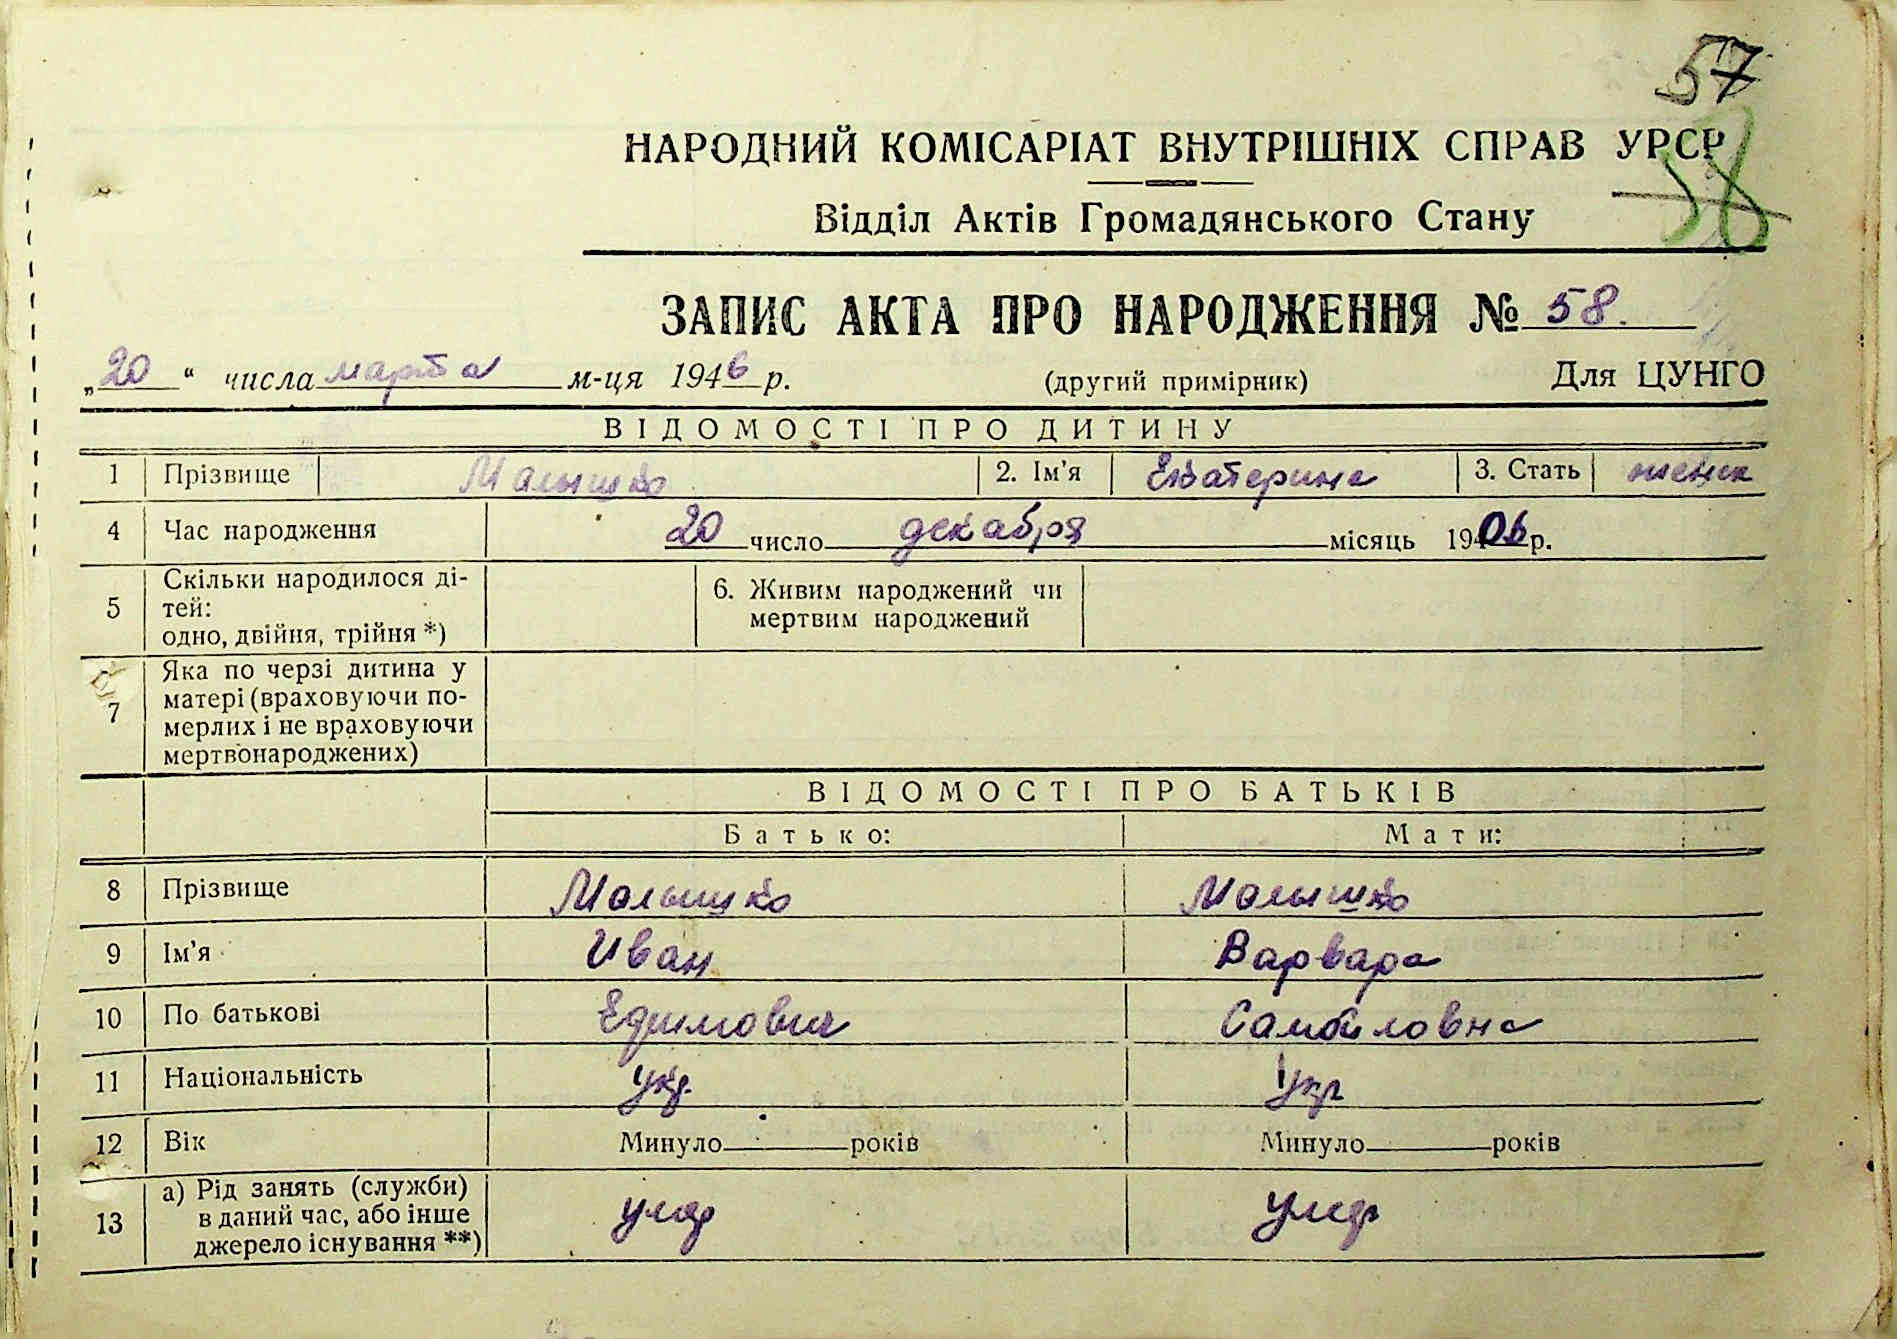 57
НАРОДНИЙ КОМІСАРІАТ ВНУТРІШНІХ СПРАВ УРСР
58
Відділ Актів Громадянського Стану
ЗАПИС АКТА ПРО НАРОДЖЕННЯ № 58.
„20“ числа марта м-ця 1946 р. (другий примірник) Для ЦУНГО
ВІДОМОСТІ ПРО ДИТИНУ
1 Прізвище Малышко 2. Ім'я Екатерина 3. Стать женск
4 Час народження 20 число декабря місяць 1906 р.
5 Скільки народилося ді-
тей:
одно, двійня, трійня *)
6. Живим народжений чи
мертвим народжений
7 Яка по черзі дитина у
матері (враховуючи по-
мерлих і не враховуючи
мертвонароджених)
ВІДОМОСТІ ПРО БАТЬКІВ
Батько: Мати:
8 Прізвище Малышко Малышко
9 Ім'я Иван Варвара
10 По батькові Ефимович Самойловна
11 Національність укр. Укр
12 Вік Минуло років Минуло років
13 а) Рід занять (служби)
в даний час, або інше
джерело існування **)
умер Умер